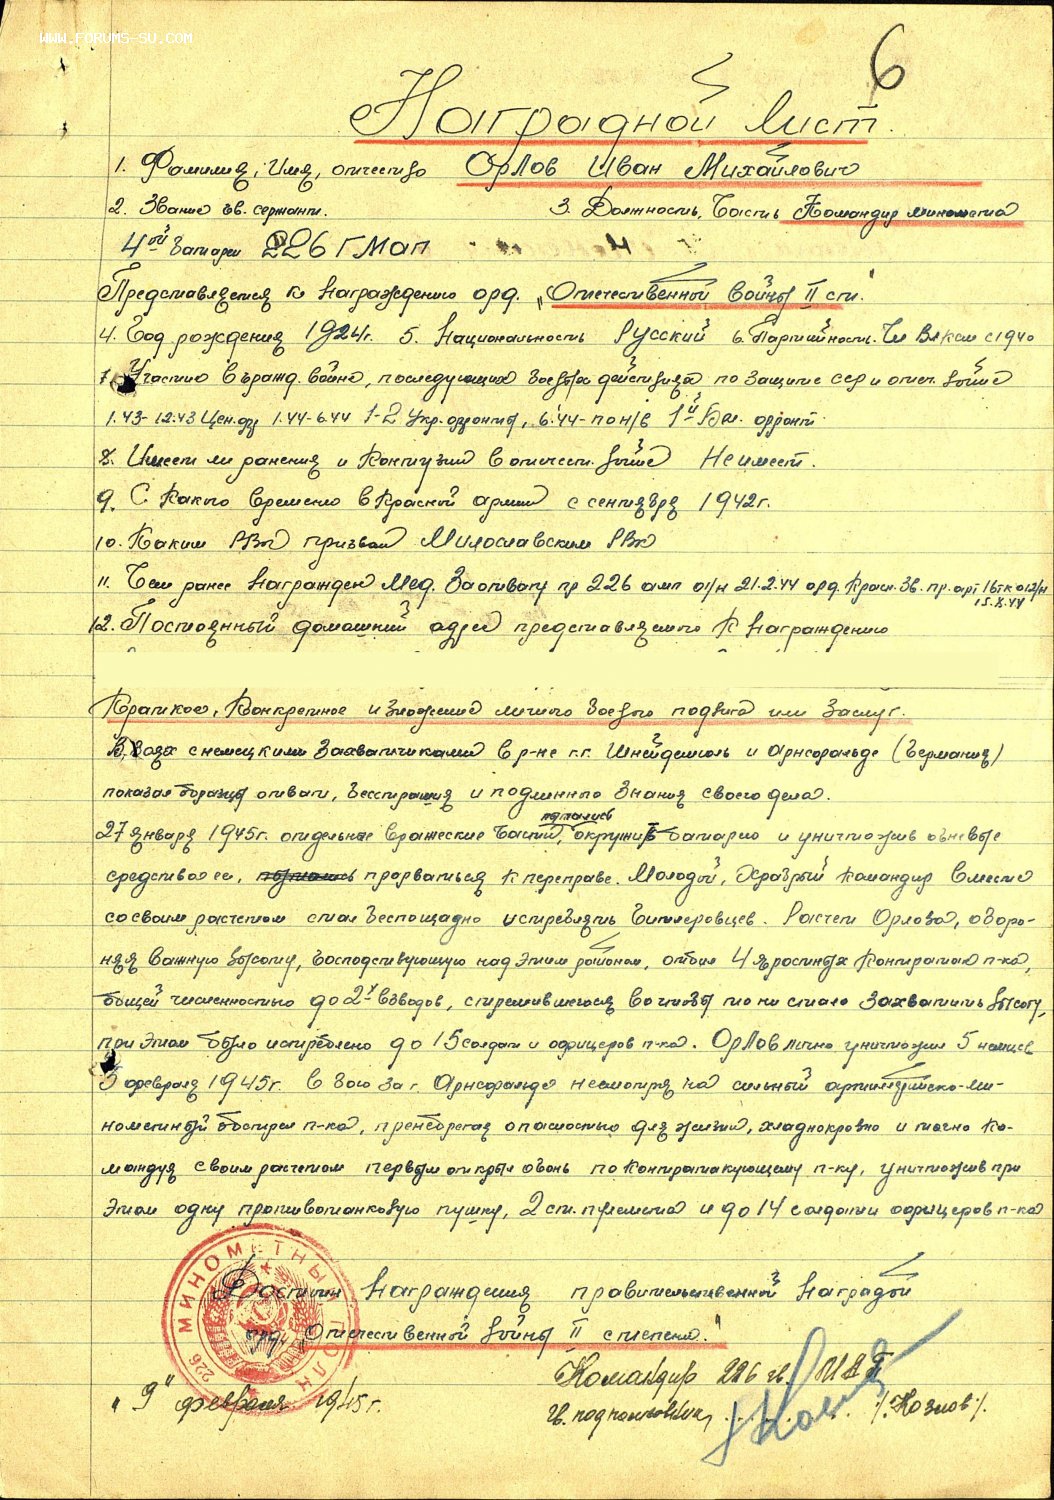 WWW.FORUMS-SU.COM
6
Наградной лист.
1. Фамилия, Имя, отчество Орлов Иван Михайлович
2. Звание гв. сержант. 3. Должность, Часть Командир миномета
4ой батареи 226 ГМАП
Представляется к награждению орд. „Отечественной войны II ст."
4. Год рождения 1924г. 5. Национальность Русский 6. Партийность. Чл ВЛКСМ с 1940
7. Участие в гражд. войне, последующих боевых действиях по защите ссср и отеч. войне
1.43-12.43 Цен.фр 1.44-6.44 1-2 Укр. фронты, 6.44-по н/в 1й Бел. фронт.
8. Имеет ли ранения и контузии в отечест. войне Не имеет.
9. С какого времени в Красной армии с сентября 1942г.
10. Каким РВК призван Милославским РВК
11. Чем ранее награжден Мед. За отвагу пр 226 амп от/н 21.2.44 орд. Красн. Зв. пр. арт 16тк 012/н
15.8.44
12. Постоянный домашний адрес представляемого к награждению
Краткое, Конкретное изложение личного боевого подвига или заслуг.
В боях с немецкими захватчиками в р-не г.г. Шнейдемюль и Арнсвальде (Германия)
показал образцы отваги, бесстрашия и подлинного знания своего дела.
пытались
27 января 1945г. отдельные вражеские части, окружив батарею и уничтожив огневые
средства ее, прорваться к переправе. Молодой, храбрый командир вместе
со своим расчетом стал беспощадно истреблять гитлеровцев. Расчет Орлова, оборо-
няя важную высоту, господствующую над этим районом, отбил 4 яростных контратаки п-ка,
общей численностью до 2х взводов, стремившегося во чтобы то ни стало захватить высоту,
при этом было истреблено до 15 солдат и офицеров п-ка. Орлов лично уничтожил 5 немцев
3 февраля 1945г. в бою за г. Арнсвальде несмотря на сильный артиллерийско-ми-
нометный обстрел п-ка, пренебрегая опасностью для жизни, хладнокровно и точно ко-
мандуя своим расчетом первым открыл огонь по контратакующему п-ку, уничтожив при
этом одну противотанковую пушку, 2 ст. пулемета и до 14 солдат и офицеров п-ка
Достоин награждения правительственной наградой
орд. „Отечественной войны II степени."
Командир 226 гв. МАП
„9" февраля 1945г. гв. подполковник /. Козлов /.
226 МИНОМЕТНЫЙ ПОЛК